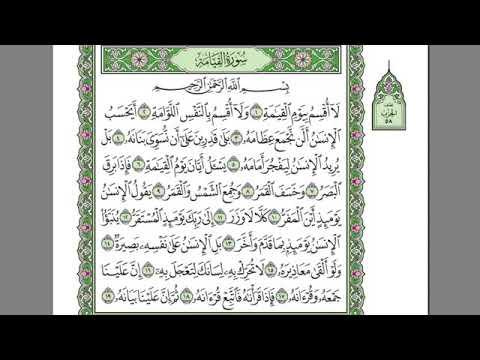 سُورَةُ القِيَامَةِ
بِسْمِ اللَّهِ الرَّحْمَٰنِ الرَّحِيمِ
لَا أُقْسِمُ بِيَوْمِ الْقِيَٰمَةِ ١ وَلَا أُقْسِمُ بِالنَّفْسِ اللَّوَّامَةِ ٢ أَيَحْسَبُ
الْإِنسَٰنُ أَلَّن نَّجْمَعَ عِظَامَهُۥ ٣ بَلَىٰ قَٰدِرِينَ عَلَىٰ أَن نُّسَوِّىَ بَنَانَهُۥ ٤ بَلْ
يُرِيدُ الْإِنسَٰنُ لِيَفْجُرَ أَمَامَهُۥ ٥ يَسْـَٔلُ أَيَّانَ يَوْمُ الْقِيَٰمَةِ ٦ فَإِذَا بَرِقَ
الْبَصَرُ ٧ وَخَسَفَ الْقَمَرُ ٨ وَجُمِعَ الشَّمْسُ وَالْقَمَرُ ٩ يَقُولُ الْإِنسَٰنُ
يَوْمَئِذٍ أَيْنَ الْمَفَرُّ ١٠ كَلَّا لَا وَزَرَ ١١ إِلَىٰ رَبِّكَ يَوْمَئِذٍ الْمُسْتَقَرُّ ١٢ يُنَبَّؤُا
الْإِنسَٰنُ يَوْمَئِذٍ بِمَا قَدَّمَ وَأَخَّرَ ١٣ بَلِ الْإِنسَٰنُ عَلَىٰ نَفْسِهِۦ بَصِيرَةٌ ١٤
وَلَوْ أَلْقَىٰ مَعَاذِيرَهُۥ ١٥ لَا تُحَرِّكْ بِهِۦ لِسَانَكَ لِتَعْجَلَ بِهِۦٓ ١٦ إِنَّ عَلَيْنَا
جَمْعَهُۥ وَقُرْءَانَهُۥ ١٧ فَإِذَا قَرَأْنَٰهُ فَاتَّبِعْ قُرْءَانَهُۥ ١٨ ثُمَّ إِنَّ عَلَيْنَا بَيَانَهُۥ ١٩
الحزب
٥٨